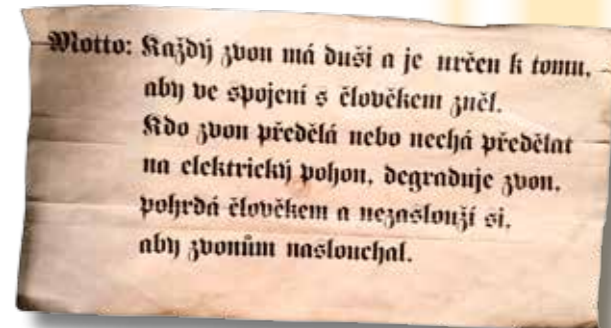 Motto: Každý zvon má duši a je určen k tomu,
aby ve spojení s člověkem zněl.
Kdo zvon předělá nebo nechá předělat
na elektrický pohon, degraduje zvon,
pohrdá člověkem a nezaslouží si,
aby zvonům naslouchal.